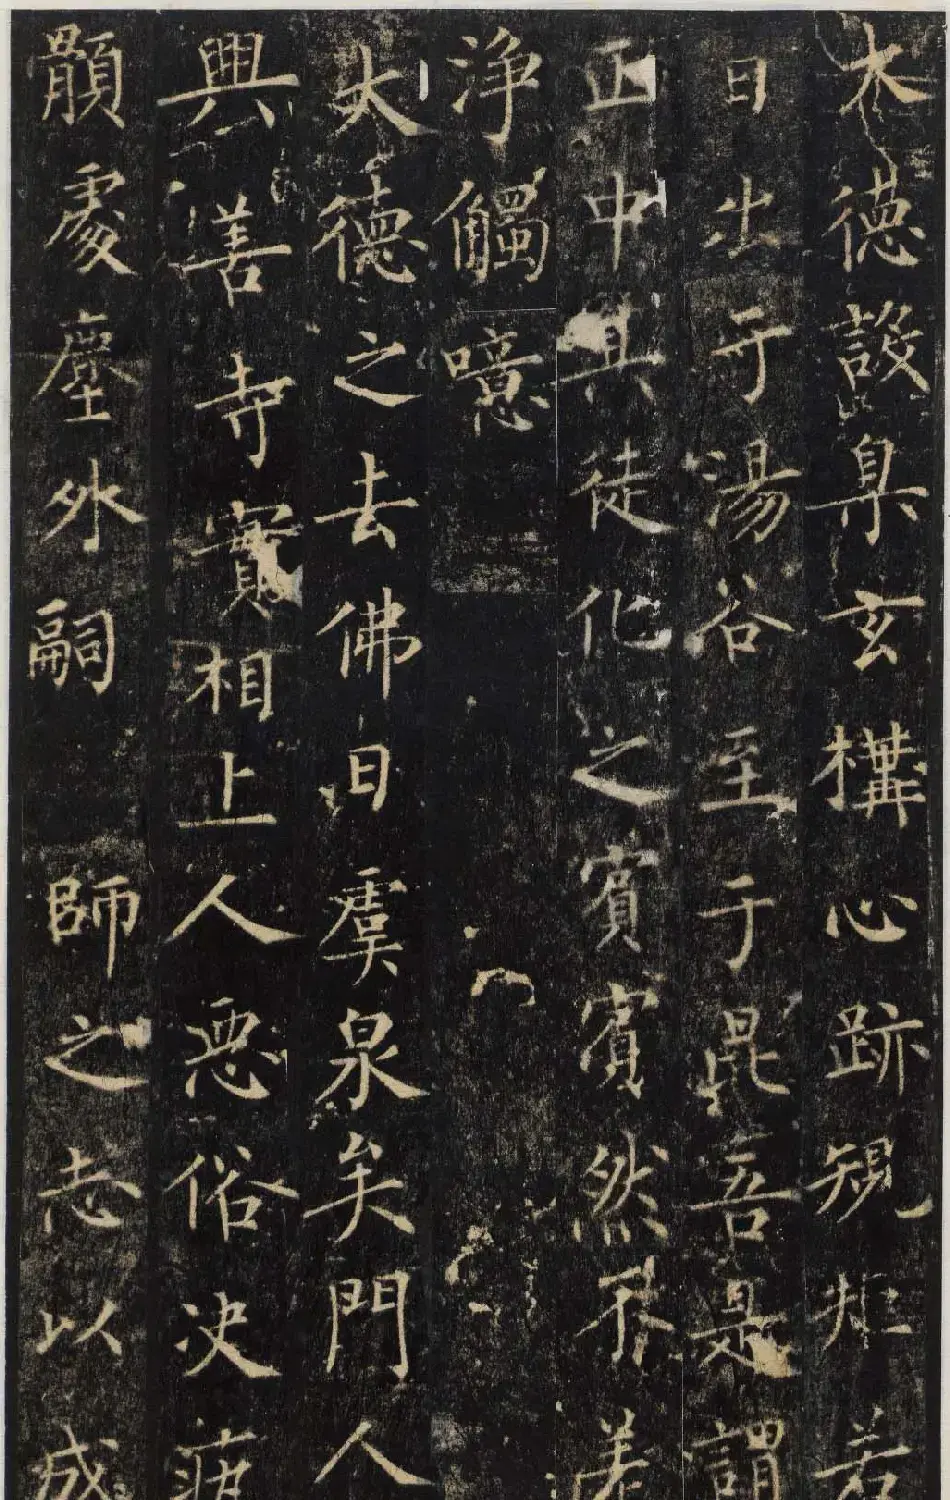 大德設臬玄構心跡規矩若
日出于湯谷至于昆吾是謂
正中其徒化之賓賓然不差
淨觸噫
大德之去佛日虞泉矣門人
興善寺實相上人惡俗決疣
顒處塵外嗣師之志以成